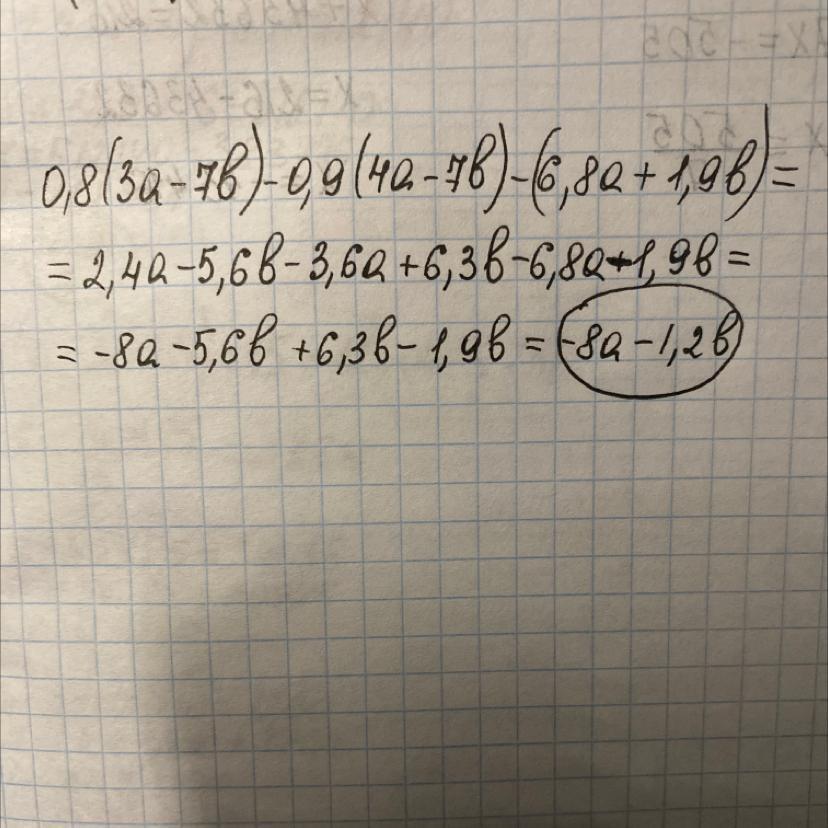 0,8(3а-7в)-0,9(4а-7в)-(6,8а+1,9в)=
=2,4а-5,6в-3,6а+6,3в-6,8а-1,9в=
=-8а-5,6в+6,3в-1,9в=-8а-1,2в